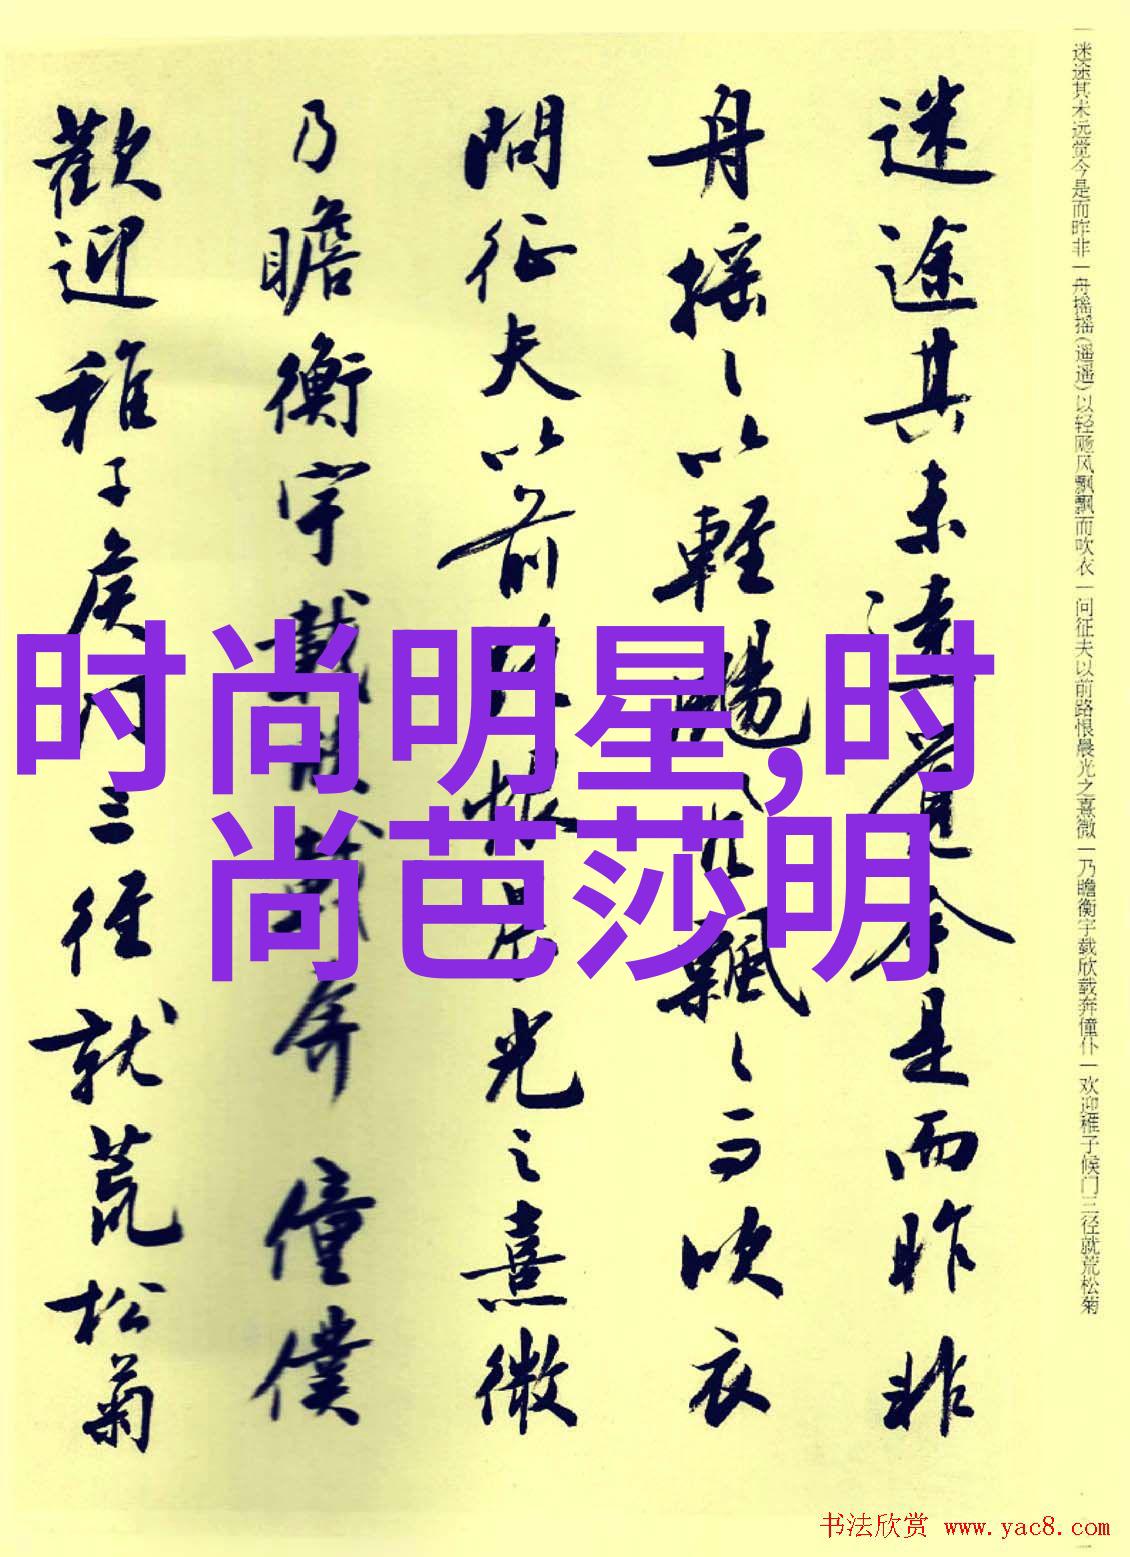 一迷途其未远觉今是而昨非一舟摇摇(遥遥)以轻飏风飘飘而吹衣一问征夫以前路恨晨光之熹微一乃瞻衡宇载欣载奔僮仆一欢迎稚子候门三径就荒松菊
迷途其未遠覺今是而昨非
舟摇々以輕颺風飄々而吹衣
問征夫以前路恨晨光之熹微
乃瞻衡宇載欣載奔僮僕
歡迎稚子候門三徑就荒松菊
时尚明星,时
尚芭莎明
书法欣赏 www.yac8.com